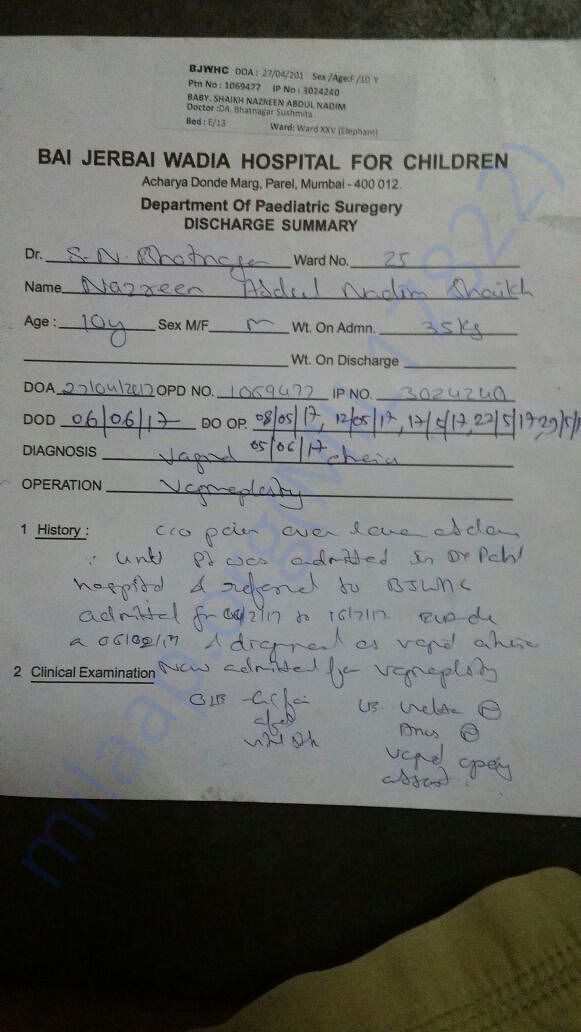 BJWHC DOA : 27/04/201 Sex /Age:F/10 Y
Ptn No : 1069477 IP No : 3024240
BABY. SHAIKH NAZREEN ABDUL NADIM
Doctor :DR. Bhatnagar Sushmita
Bed : E/13 Ward: Ward XXV (Elephant)
BAI JERBAI WADIA HOSPITAL FOR CHILDREN
Acharya Donde Marg, Parel, Mumbai - 400 012.
Department Of Paediatric Suregery
DISCHARGE SUMMARY
Dr. S.N. Bhatnagar Ward No. 25
Name Nazreen Abdul Nadim Shaikh
Age : 10y Sex M/F Wt. On Admn. 35kg
Wt. On Discharge
DOA 27/04/2017 OPD NO. 1069477 IP NO. 3024240
DOD 06/06/17 DO OP. 08/05/17, 12/05/17, 17/5/17, 22/5/17, 29/5/1
05/06/17
DIAGNOSIS
OPERATION Vaginoplasty
1 History : c/o pain over lower abdomen
until pt was admitted in
hospital & referred to BJWHC
admitted to
&
2 Clinical Examination Now admitted for vaginoplasty
Anus
absent
milaap.org(Mil-17822)